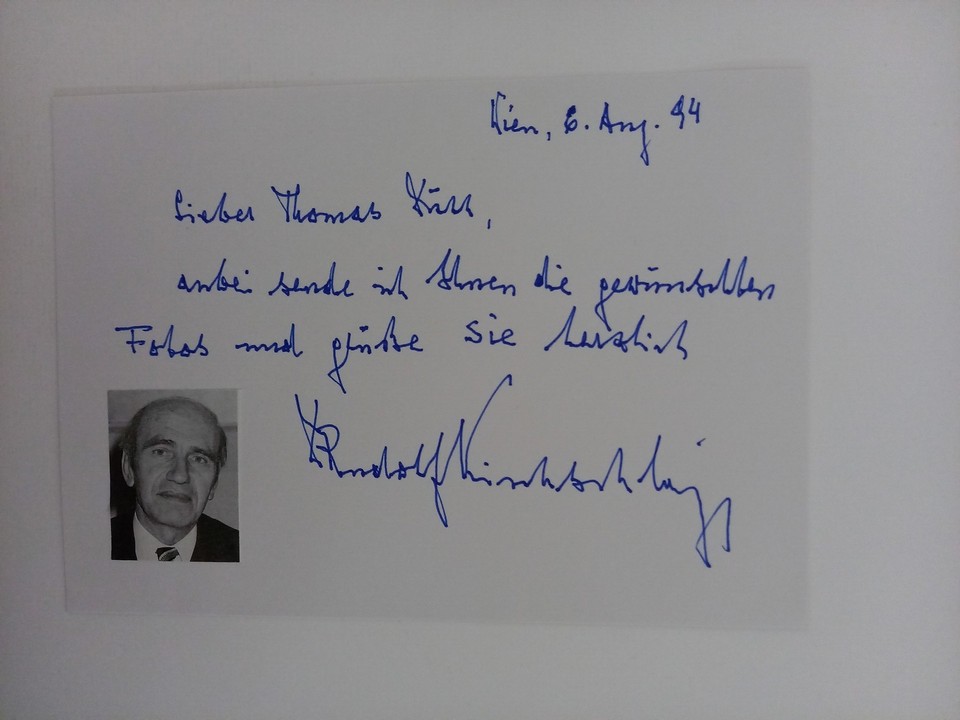 Wien, 6. Aug. 94
Lieber Thomas
anbei sende ich Ihnen die gewünschten
Fotos und grüße Sie herzlich
Rudolf Kirchschläger